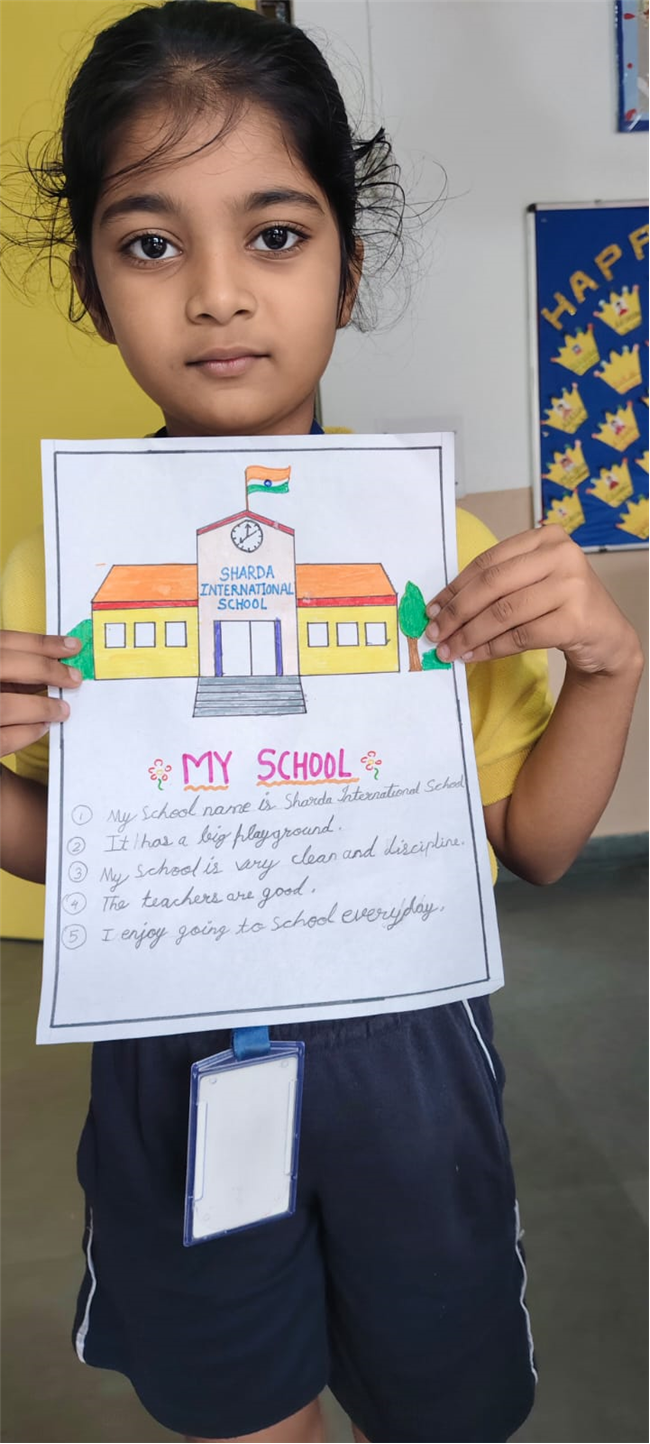 HAPP
SHARDA
INTERNATIONAL
SCHOOL
MY SCHOOL
1 My School name is Sharda International School
2 It has a big playground.
3 My School is very clean and discipline.
4 The teachers are good.
5 I enjoy going to School everyday.